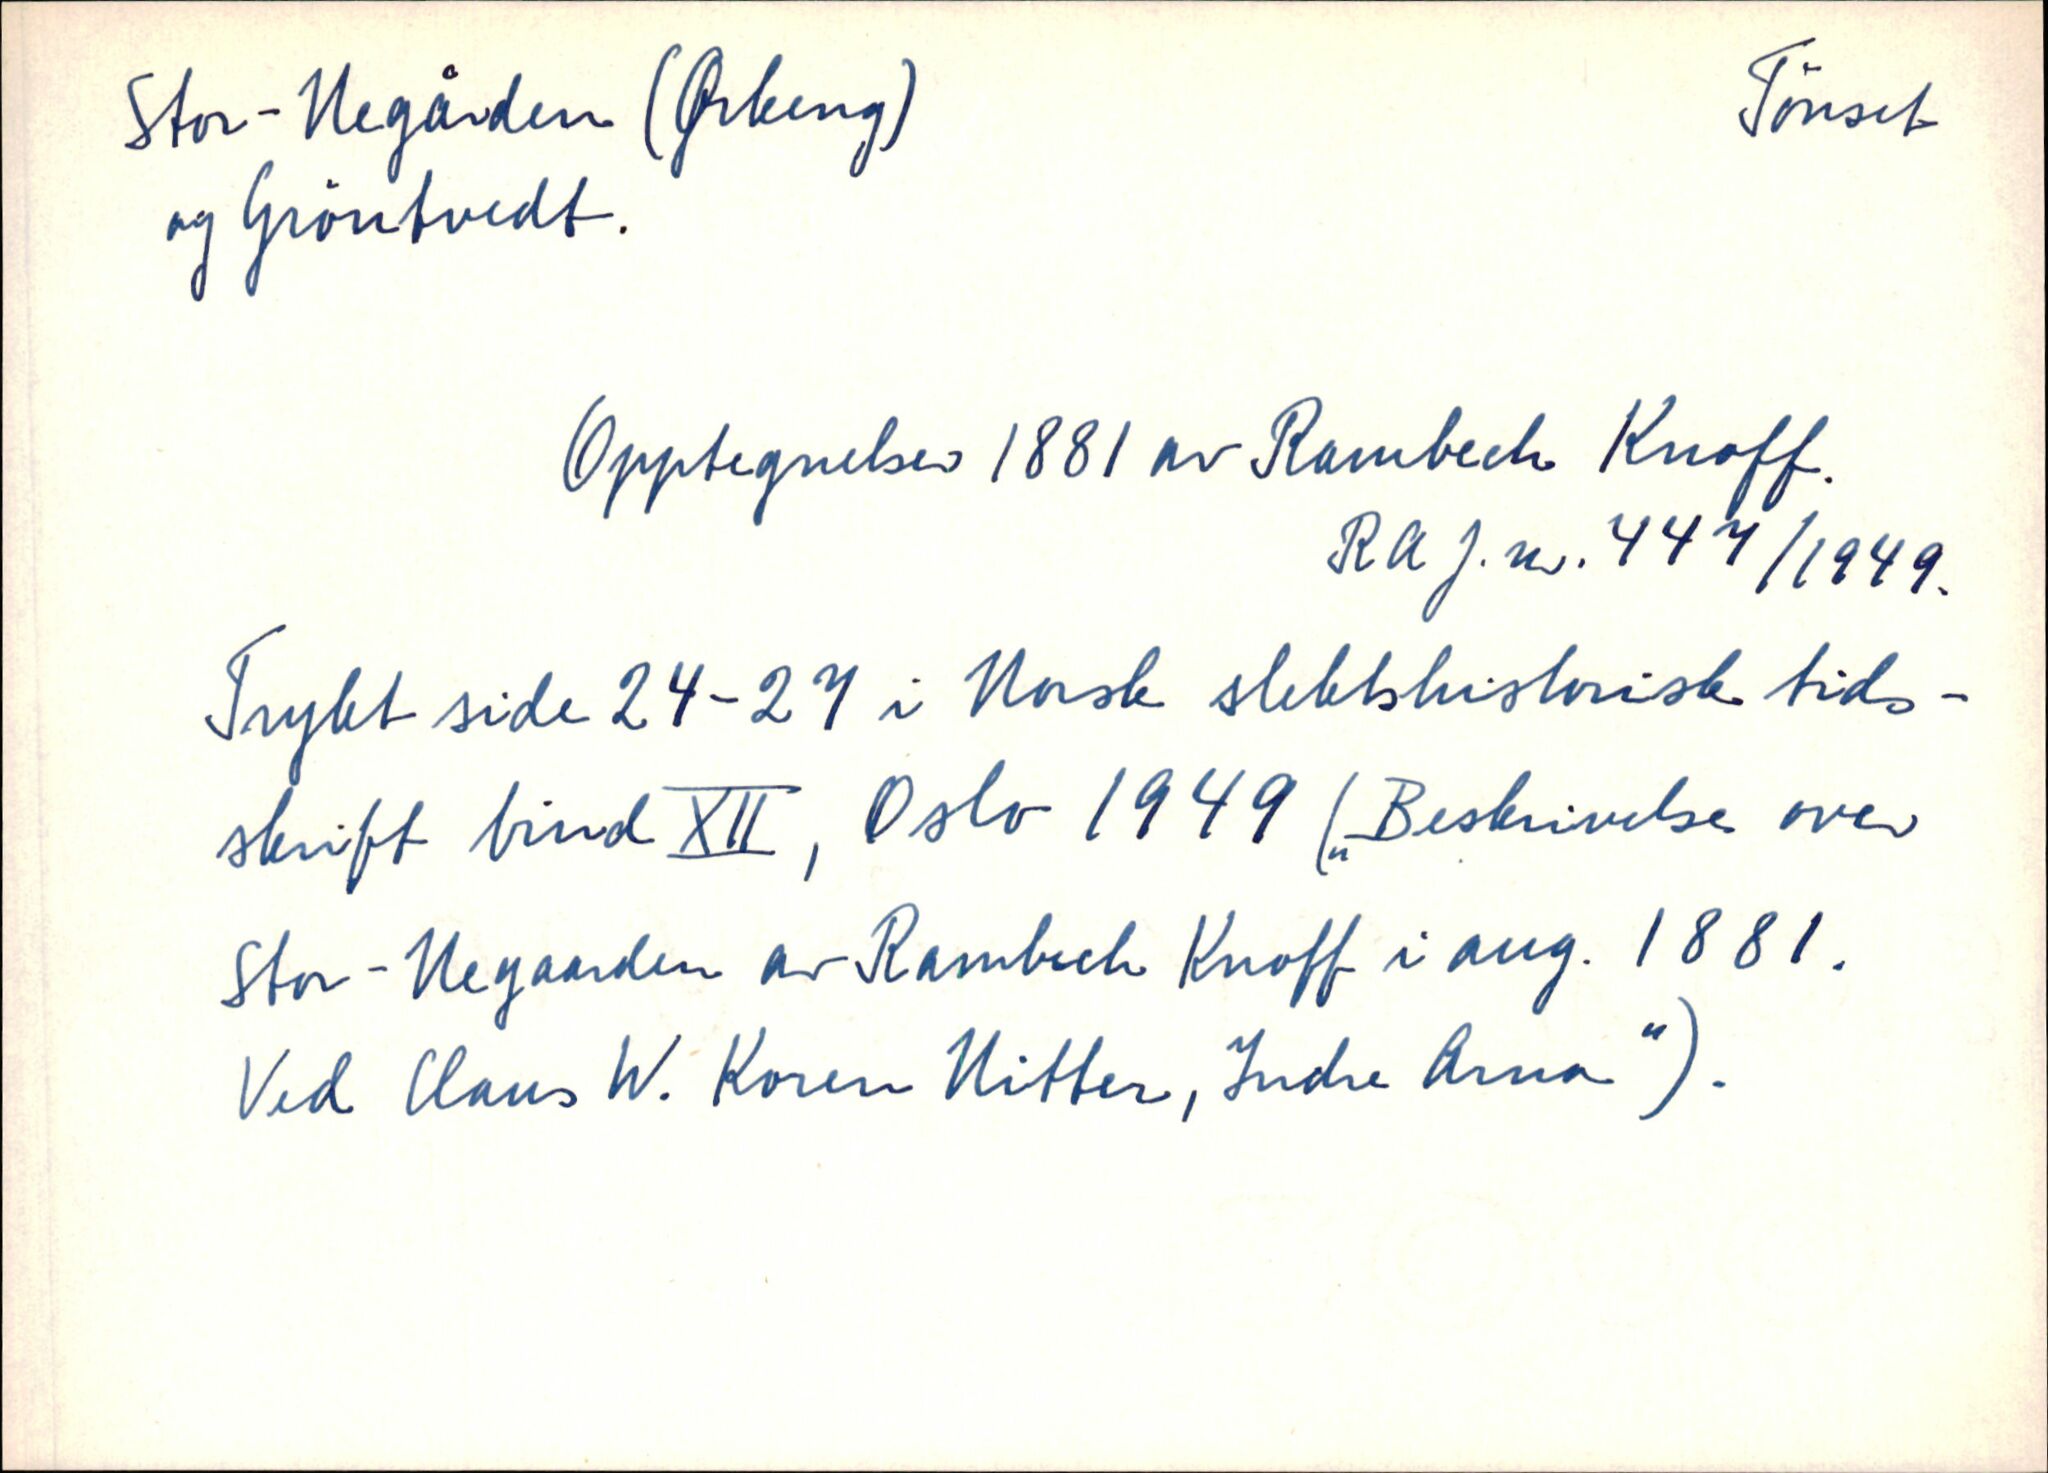 Stor-Negården (Ørkeng)
Tönset
og Gröntvedt.
Opptegnelser 1881 av Rambech Knoff.
RA j.nr. 447/1949.
Trykt side 24-27 i Norsk slektshistorisk tids-
skrift bind XII, Oslo 1949 („Beskrivelse over
Stor-Negaarden av Rambech Knoff i aug. 1881.
Ved Claus W. Koren Nitter, Indre Arna“).